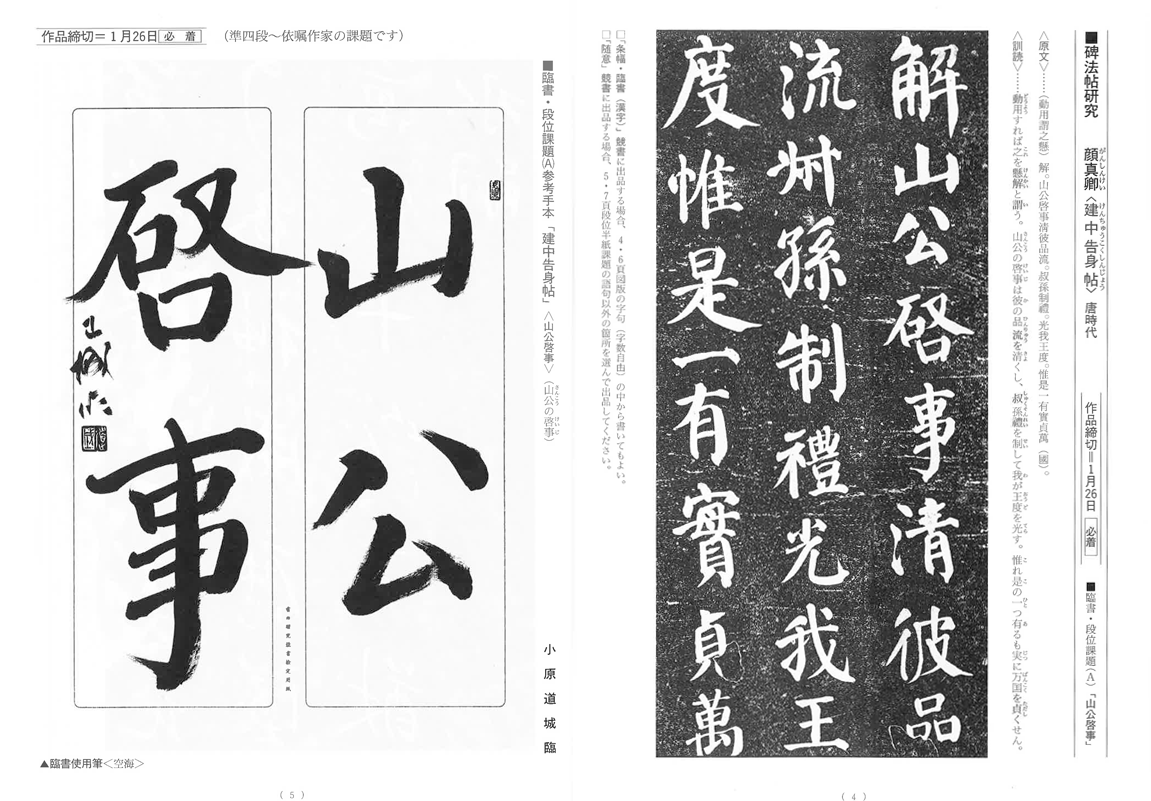 ■碑法帖研究　顔真卿〈建中告身帖〉唐時代　作品締切＝1月26日 必着　■臨書・段位課題(A)「山公啓事」
がんしんけい　けんちゅうこくしんじょう
〈原文〉……（動用謂之懸）解。山公啓事清彼品流。叔孫制禮。光我王度。惟是一有實貞萬（國）。
〈訓読〉……動用すれば之を懸解と謂う。山公の啓事は彼の品流を清くし、叔孫禮を制して我が王度を光す。惟れ是の一つ有るも実に万国を貞くせん。
解山公啓事清彼品
流叔孫制禮光我王
度惟是一有實貞萬
□「条幅・臨書（漢字）」競書に出品する場合、4・6頁図版の字句（字数自由）の中から書いてもよい。
□「随意」競書に出品する場合、5・7頁段位半紙課題の語句以外の箇所を選んで出品してください。
（4）
作品締切＝1月26日 必着　（準四段～依嘱作家の課題です）
■臨書・段位課題(A)参考手本「建中告身帖」〈山公啓事〉（山公の啓事）
さんこう　けいじ
小原道城臨
山公
啓事
▲臨書使用筆＜空海＞
（5）